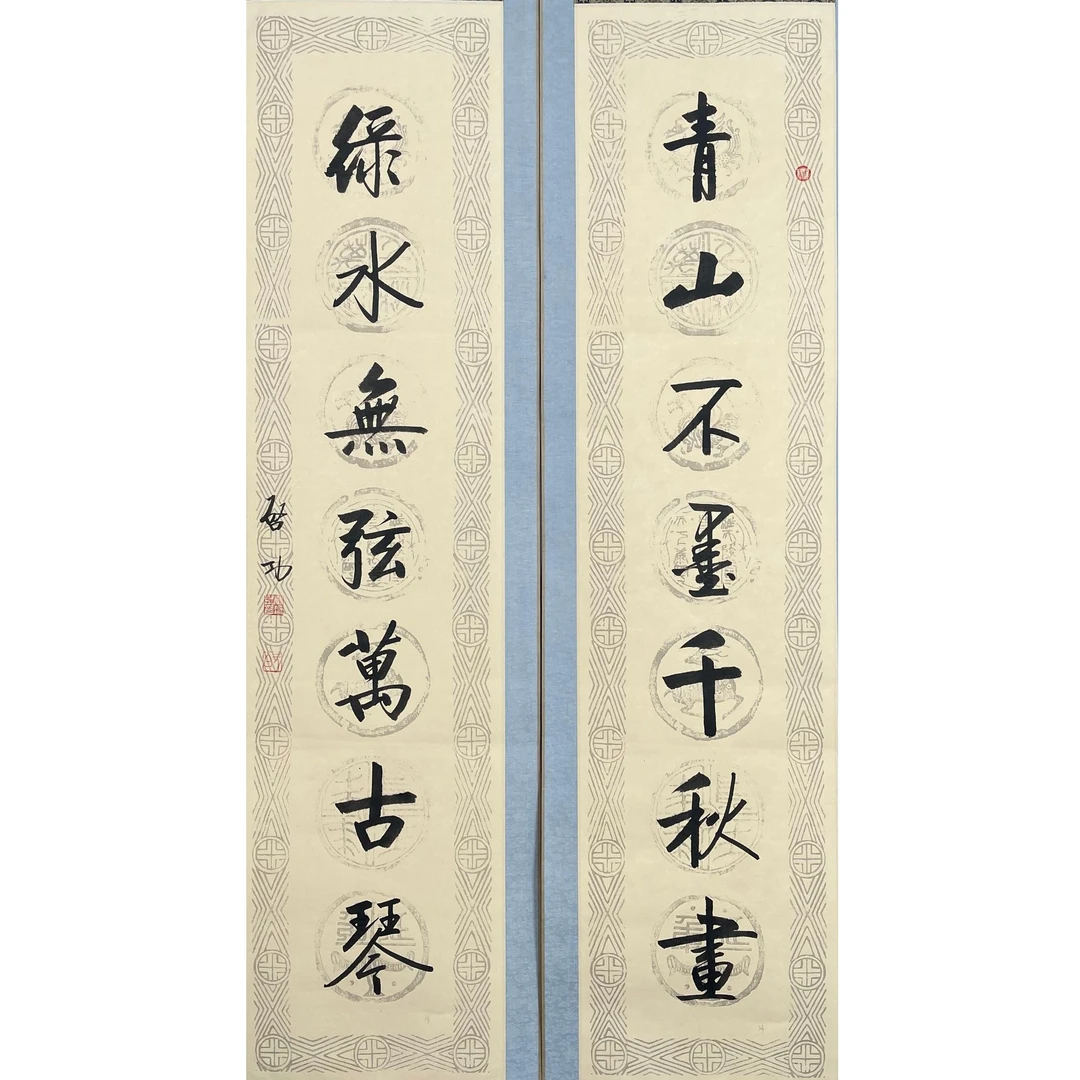 青山不墨千秋畫
綠水無弦萬古琴
啓功